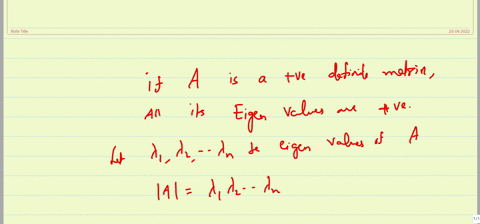 Note Title
29-04-2022
if A is a +ve definite matrix,
All its Eigen values are +ve.
Let λ₁, λ₂, -- λₙ be eigen values of A
|A| = λ₁ λ₂ -- λₙ
1/1